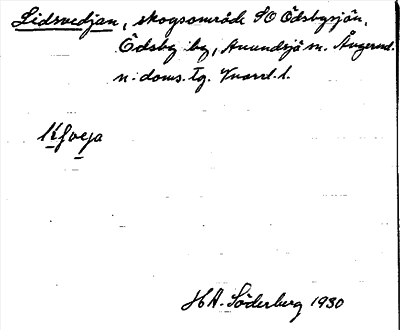 Lidsvedjan, skogsområde SO Ödsbysjön,
Ödsby by, Anundsjö sn. Ångerml.
n. doms. tg. Vnorrl. l.
H. A. Söderberg 1930